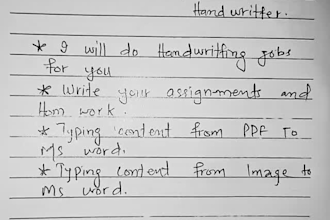 Hand writter.
* I will do Handwritting jobs
for you
* Write your assign-ments and
Hom work.
* Typing content from PDF To
Ms word.
* Typing content from Image to
Ms word.